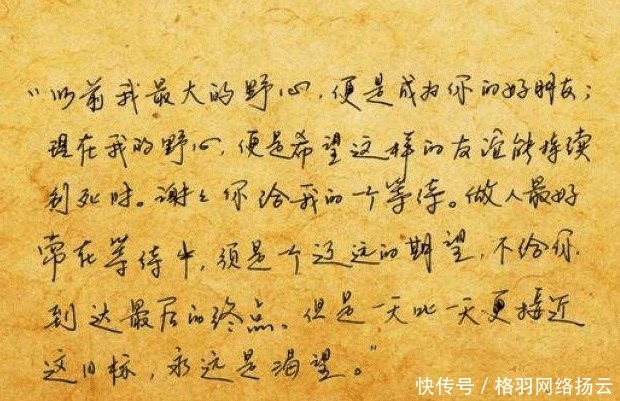 “以前我最大的野心，便是成为你的好朋友；
现在我的野心，便是希望这样的友谊能持续
到死时。谢谢你给我的一个等待。做人最好
常在等待中，须是个辽远的期望，不给你
到达最后的终点。但是一天比一天更接近
这目标，永远是渴望。”
快传号／格羽网络扬云